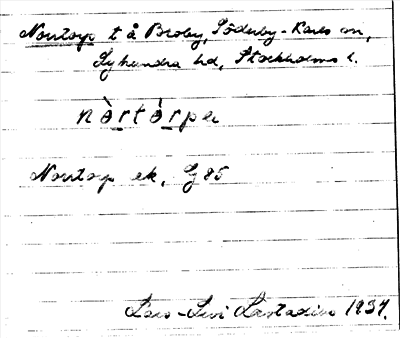 Norrtorp t å Broby, Söderby-Karls sn,
Lyhundra hd, Stockholms l.
nòrtòrpe
Norrtorp ek. G 85
Lars-Levi Læstadius 1934.